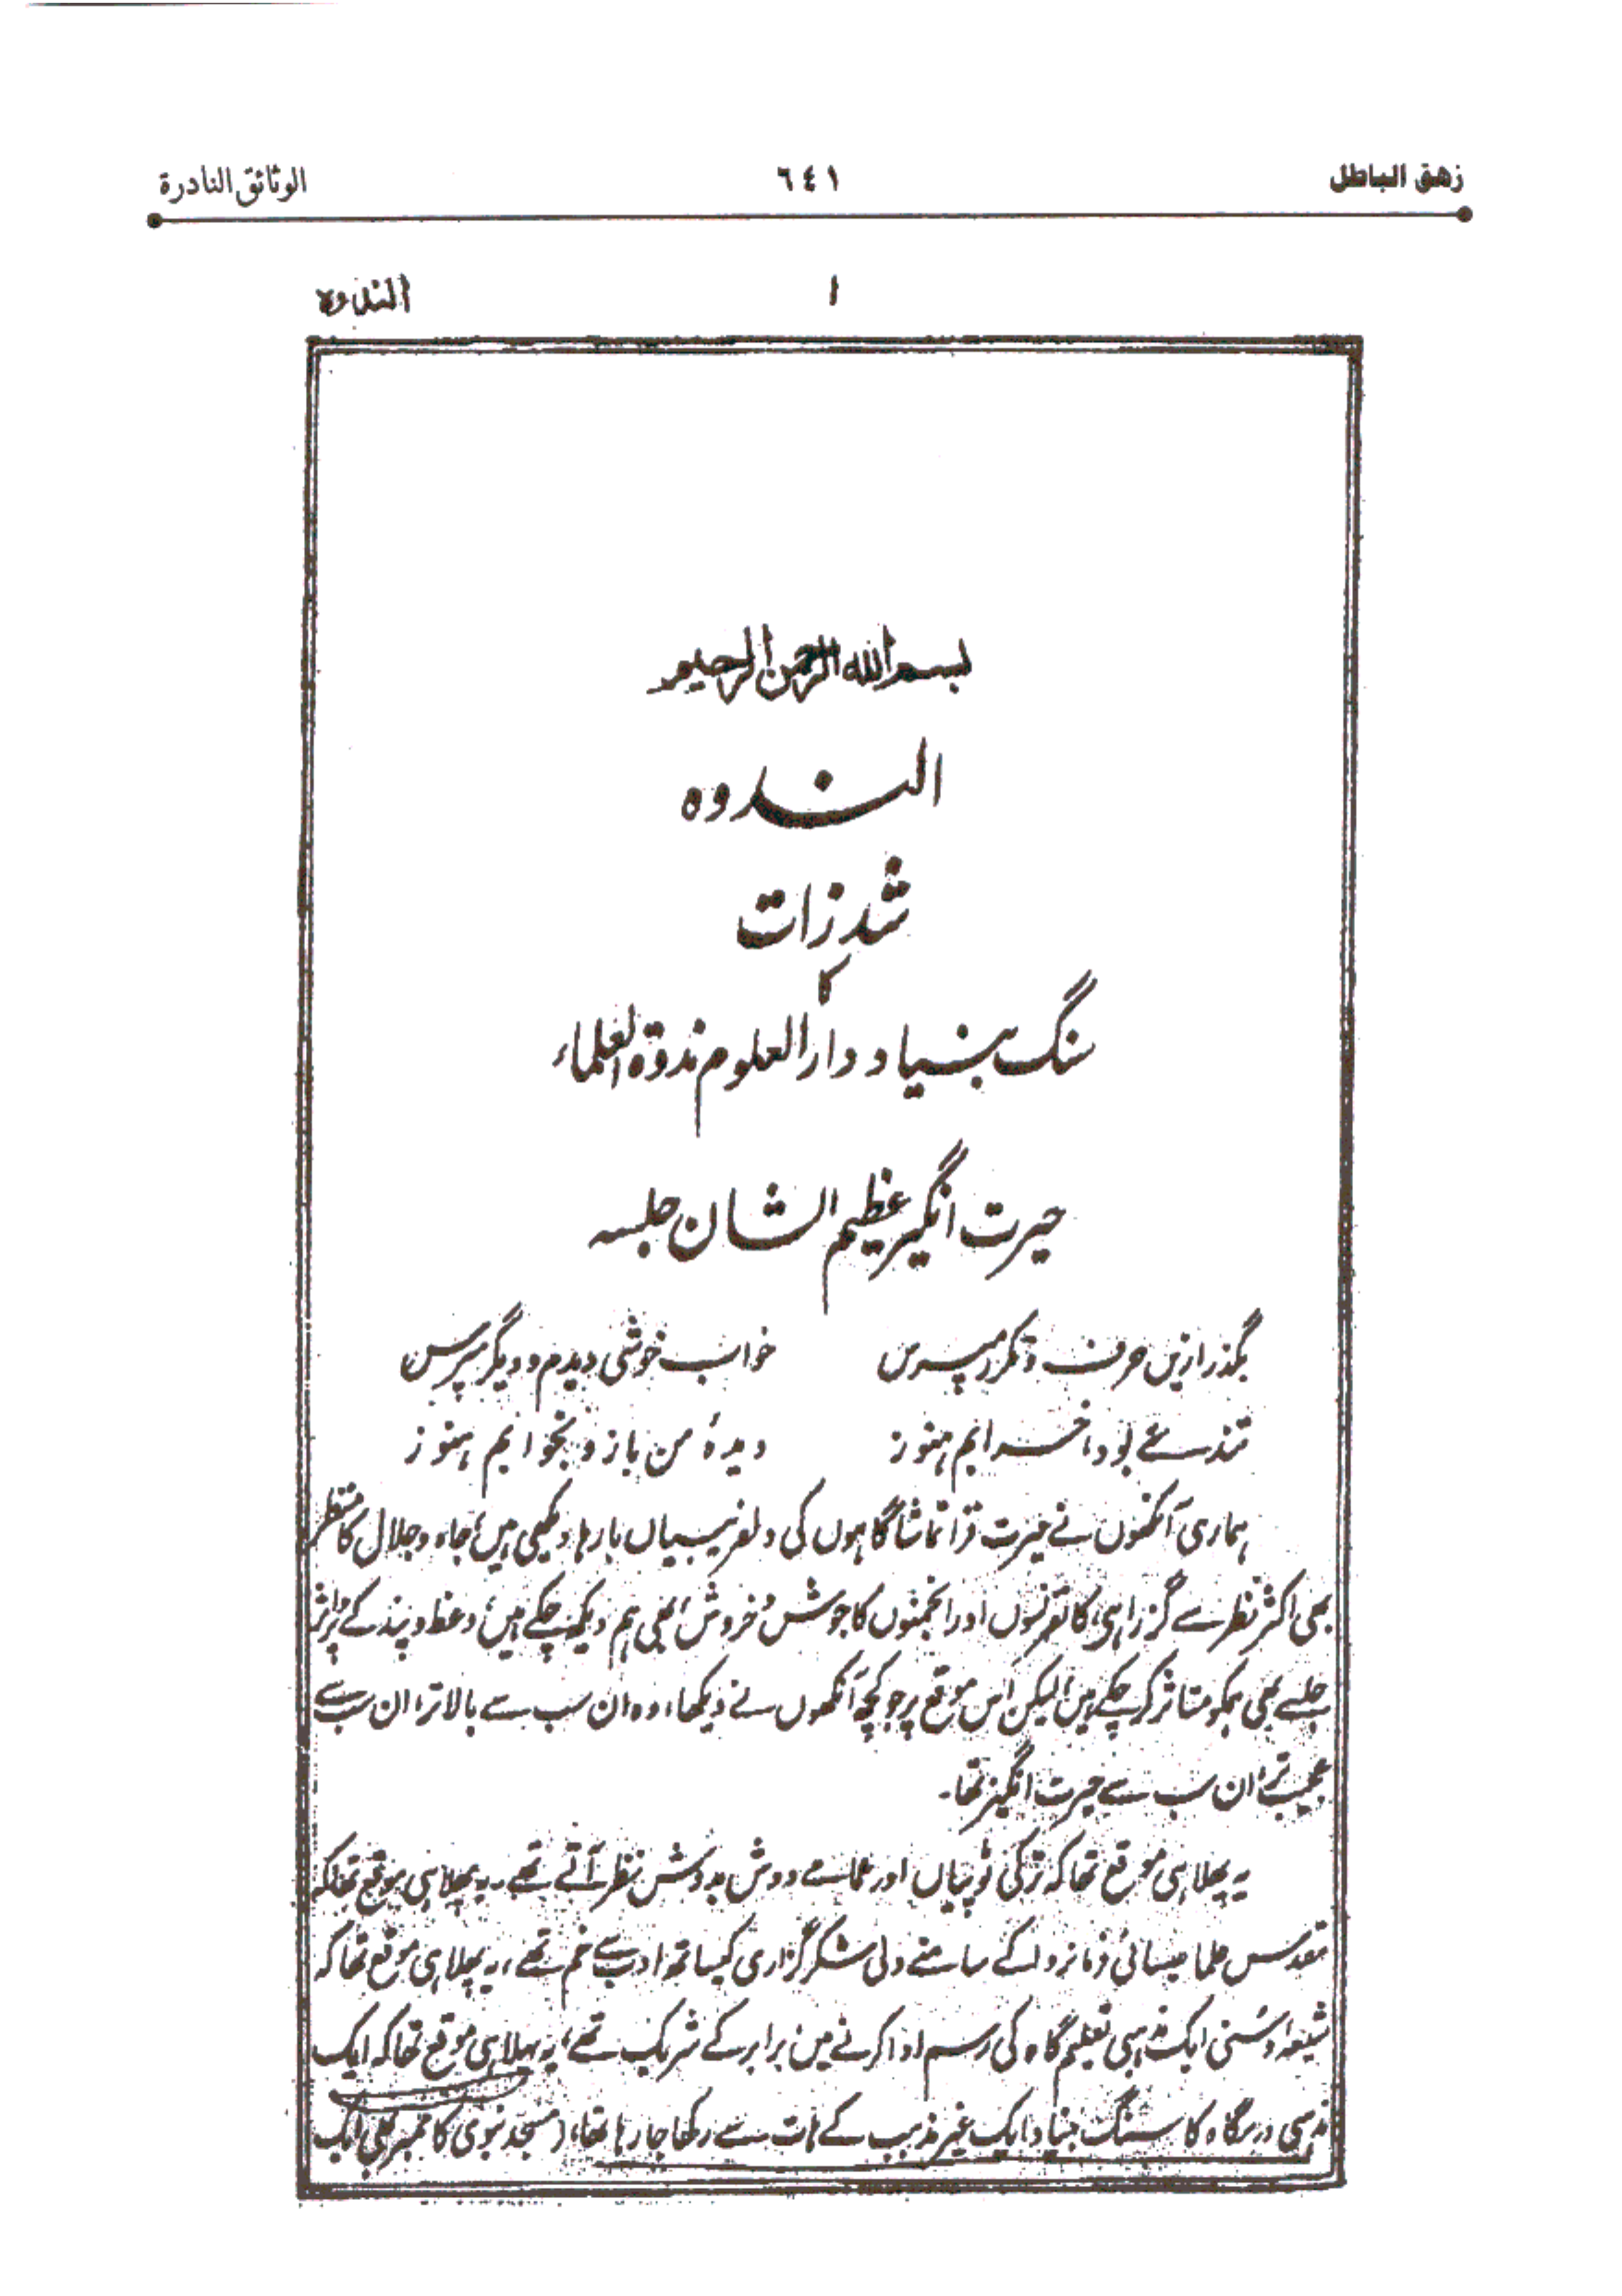 زهق الباطل ٦٤١ الوثائق النادرة
ا الندوہ
بسم اللہ الرحمن الرحیم
الندوہ
شذرات
کا
سنگ بنیاد دارالعلوم ندوۃ العلماء
حیرت انگیز عظیم الشان جلسہ
بگذر ازین حرف و مکرر مپرس خواب خوشی دیدم و دیگر مپرس
تند مے بود، خرابم ہنوز دیدۂ من باز و بخوابم ہنوز
ہماری آنکھوں نے حیرت فزا تماشا گاہوں کی دلفریبیاں بارہا دیکھی ہیں، جاہ و جلال کا منظر
بھی اکثر نظر سے گزرا ہی، کانفرنسوں اور انجمنوں کا جوش و خروش بھی ہم دیکھ چکے ہیں، وعظ و پند کے پُراثر
جلسے بھی ہمکو متاثر کر چکے ہیں، لیکن اس موقع پر جو کچھ آنکھوں نے دیکھا، وہ ان سب سے بالاتر، ان سب سے
عجیب تر، ان سب سے حیرت انگیز تھا۔
یہ پہلا ہی موقع تھا کہ ترکی ٹوپیاں اور عمامے دوش بدوش نظر آتے تھے۔ یہ پہلا ہی موقع تھا کہ
مقدس علما عیسائی فرمانروا کے سامنے دلی شکر گزاری کیساتھ ادب سے خم تھے، یہ پہلا ہی موقع تھا کہ
شیعہ و سُنی ایک مذہبی تعلیم گاہ کی رسم ادا کرنے میں برابر کے شریک تھے، یہ پہلا ہی موقع تھا کہ ایک
مذہبی درسگاہ کا سنگ بنیاد ایک غیر مذہب کے ہات سے رکھا جا رہا تھا، (مسجد نبوی کا ممبر بھی ایک